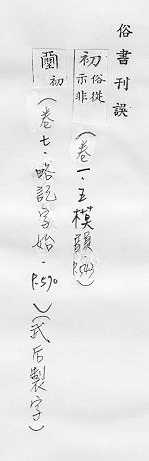 俗書刊誤
初俗從示非(卷一·五模韻·P.543)
初(卷七·略記字始·P.590)(武后製字)